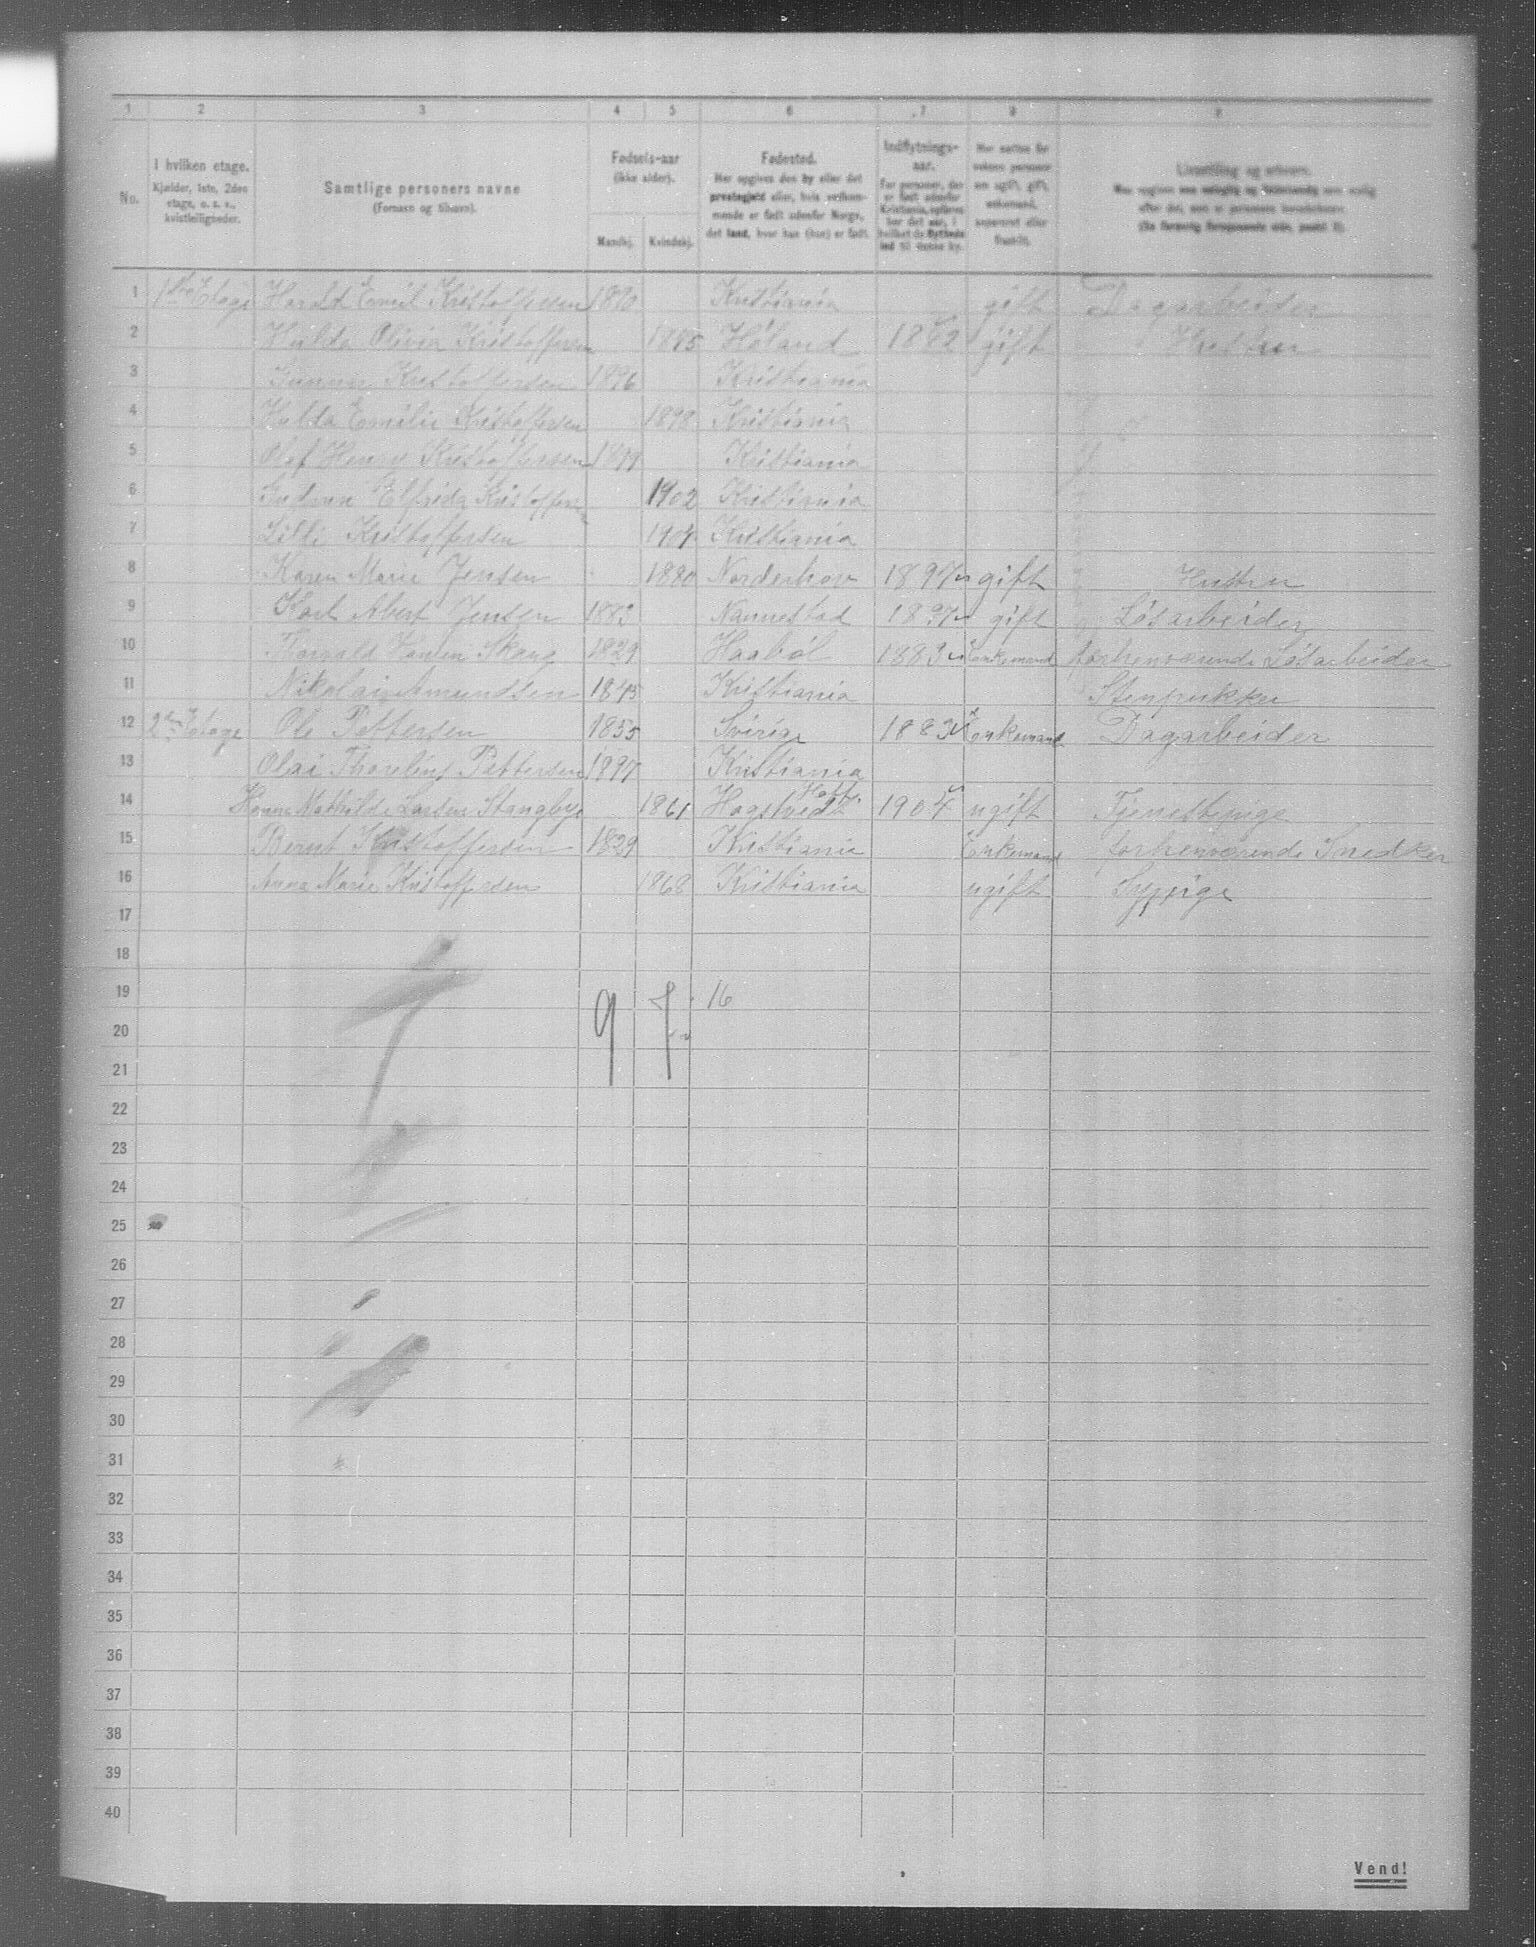 1 2 3 4 5 6 7 8 9
No.
I hvilken etage.
Kjælder, 1ste, 2den
etage, o. s. v.,
kvistleiligheder.
Samtlige personers navne
(Fornavn og tilnavn).
Fødsels-aar
(ikke alder).
Mandkj. Kvindekj.
Fødested.
Her opgives den by eller det
præstegjeld eller, hvis vedkom-
mende er født udenfor Norge,
det land, hvor han (hun) er født.
Indflytnings-
aar.
For personer, der
er født udenfor
Kristiania, opføres
her det aar, i
hvilket de flyttede
ind til denne by.
Her sættes for
voksne personer
om ugift, gift,
enkemand,
separeret eller
fraskilt.
Livsstilling og erhverv.
1 1ste Etage Harald Emil Kristoffersen 1870 Kristiania gift Dagarbeider
2 Hulda Olivia Kristoffersen 1875 Høland 1892 gift Hustru
3 Gunnar Kristoffersen 1896 Kristiania
4 Hulda Emilie Kristoffersen 1898 Kristiania
5 Olaf Henry Kristoffersen 1899 Kristiania
6 Elfrida Kristoffersen 1902 Kristiania
7 Lilli Kristoffersen 1904 Kristiania
8 Karen Marie Jensen 1880 Norderhov 1897 gift Hustru
9 Karl Abert Jensen 1883 Nannestad 1897 gift Løsarbeider
10 Thorvald Hansen Skaug 1829 Haabøl 1883 Enkemand forhenværende Løsarbeider
11 Nikolai Amundsen 1845 Kristiania Stenpukker
12 2den Etage Ole Pettersen 1855 Sverige 1883 Enkemand Dagarbeider
13 Olai Thorelius Pettersen 1897 Kristiania
14 Hanna Mathilde Larsen Stangbye 1861 Hagstvedt 1904 ugift Tjenestepige
15 Bernt Kristoffersen 1829 Kristiania Enkemand forhenværende Snedker
16 Anna Marie Kristoffersen 1868 Kristiania ugift Sypige
17
18
19 9 7 16
20
21
22
23
24
25
26
27
28
29
30
31
32
33
34
35
36
37
38
39
40
Vend!